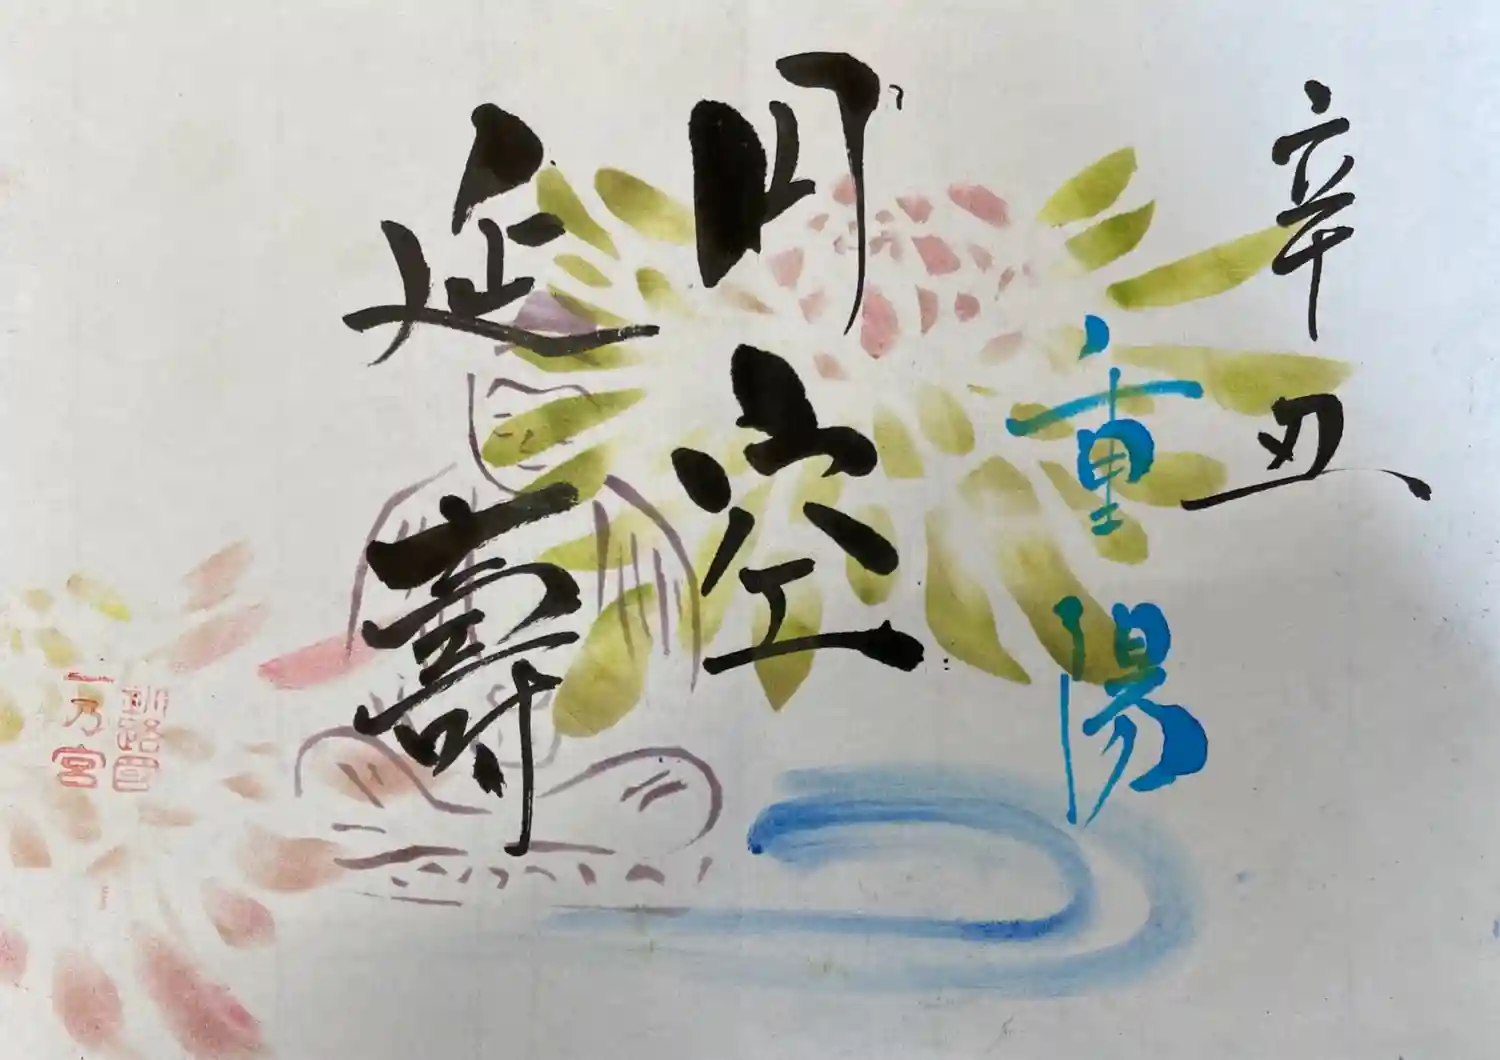 辛丑
重陽
円空
延壽
釧路國
一乃宮